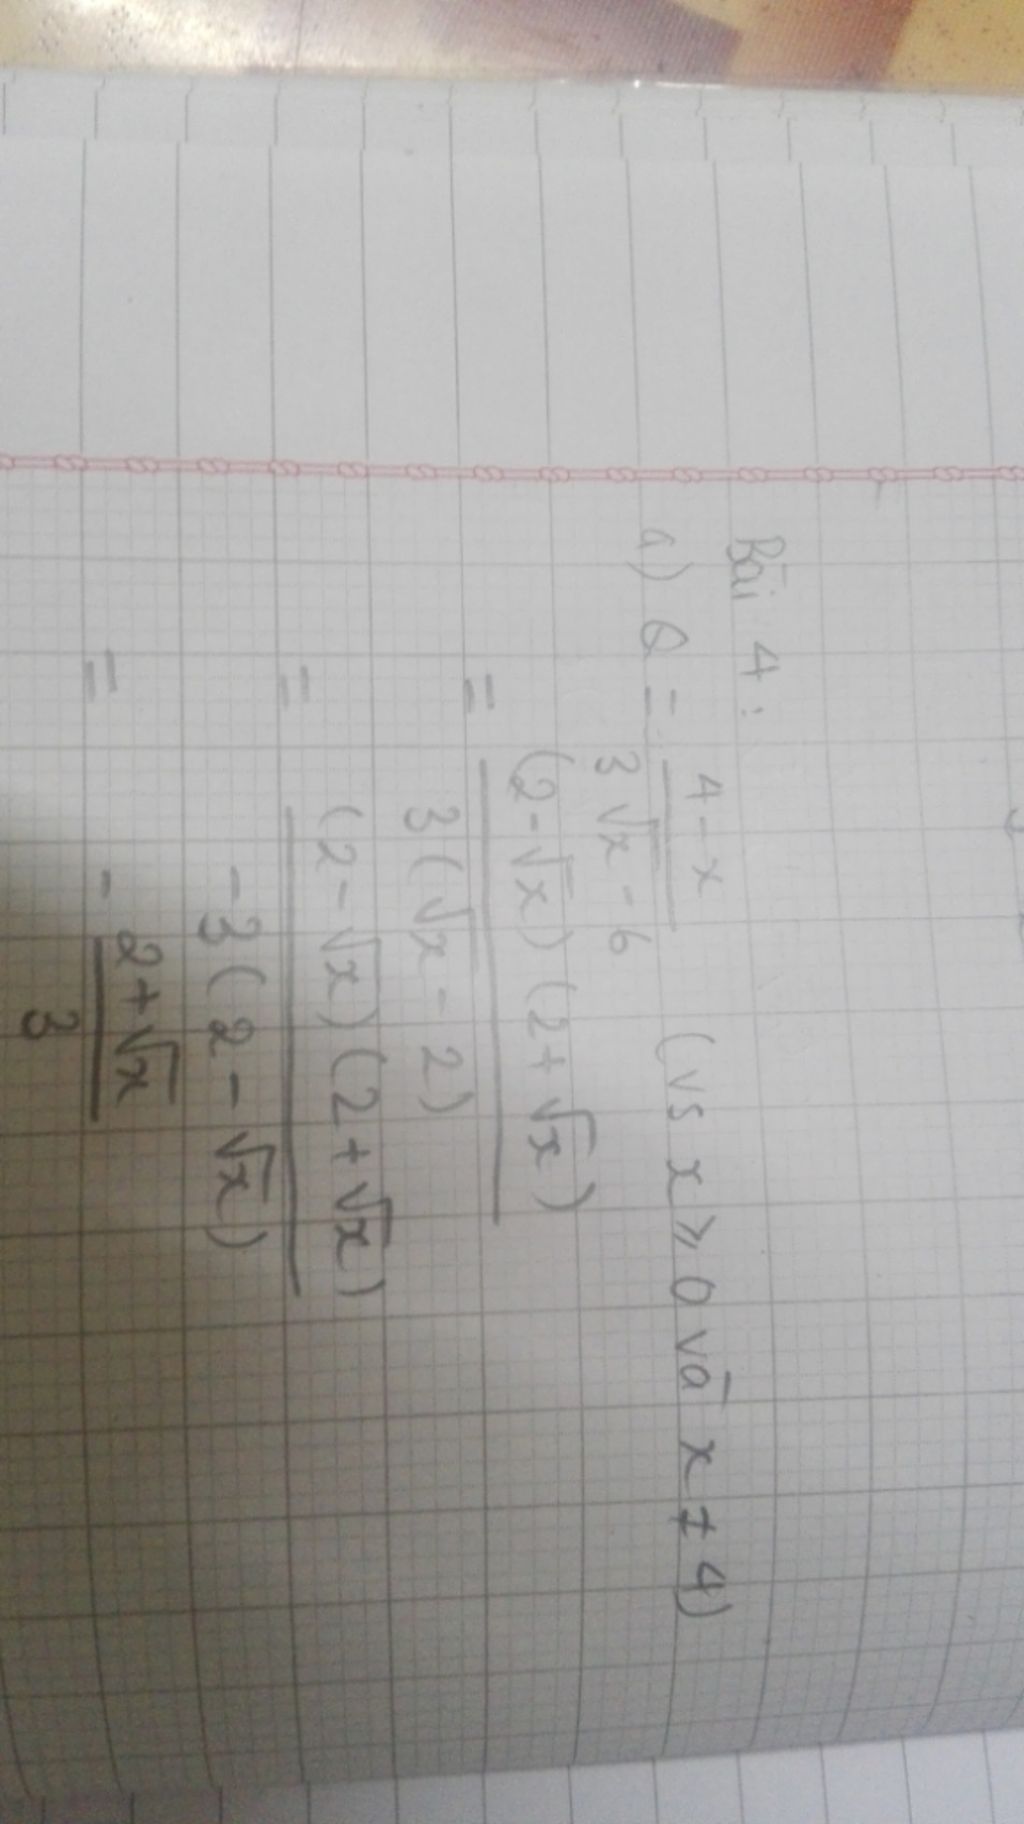 Bài 4:
a) Q = \frac{4-x}{3\sqrt{x}-6} (vs x ≥ 0 và x ≠ 4)
= \frac{(2-\sqrt{x})(2+\sqrt{x})}{3(\sqrt{x}-2)}
= \frac{(2-\sqrt{x})(2+\sqrt{x})}{-3(2-\sqrt{x})}
= -\frac{2+\sqrt{x}}{3}